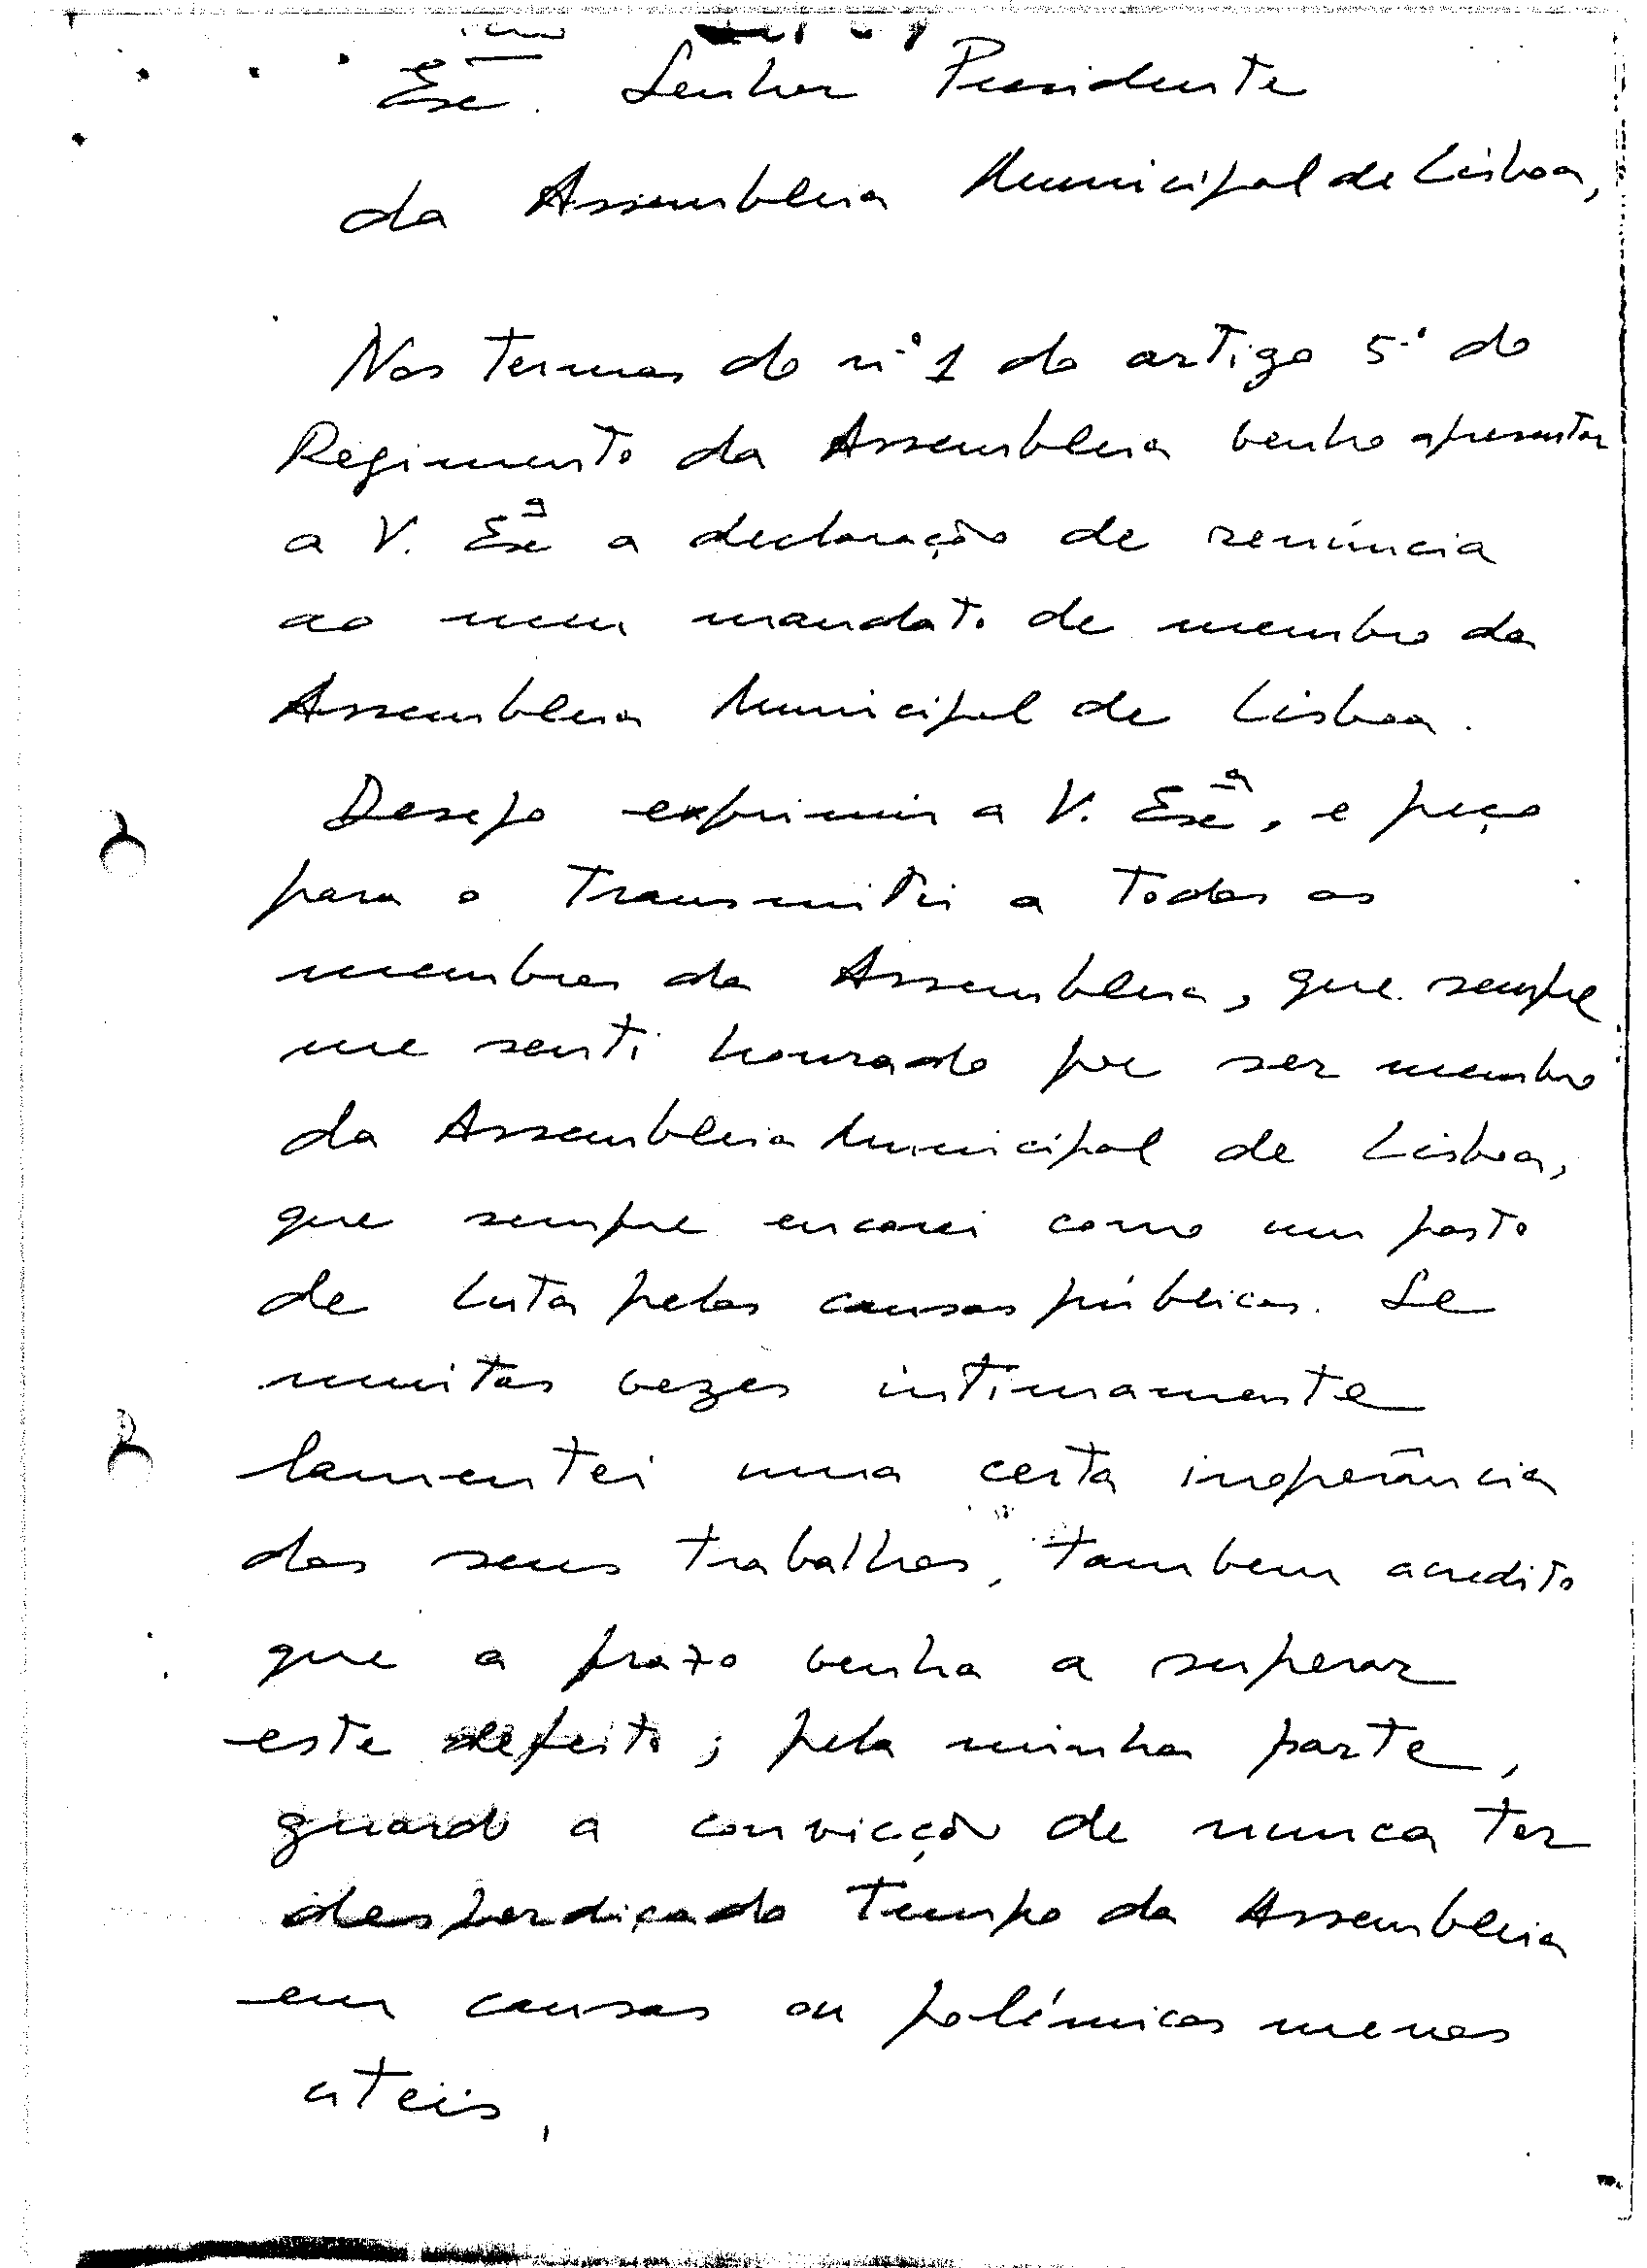 Exmo. Senhor Presidente
da Assembleia Municipal de Lisboa,
Nos termos do nº 1 do artigo 5.º do
Regimento da Assembleia venho apresentar
a V. Exª a declaração de renúncia
ao meu mandato de membro da
Assembleia Municipal de Lisboa.
Desejo exprimir a V. Exª, e peço
para o transmitir a todos os
membros da Assembleia, que sempre
me senti honrado por ser membro
da Assembleia Municipal de Lisboa,
que sempre encarei como um posto
de luta pelas causas públicas. Se
muitas vezes intimamente
lamentei uma certa inoperância
dos seus trabalhos, tambem acredito
que a prazo venha a superar
este defeito; pela minha parte,
guardo a convicção de nunca ter
desperdiçado tempo da Assembleia
em causas ou polémicas menos
uteis,